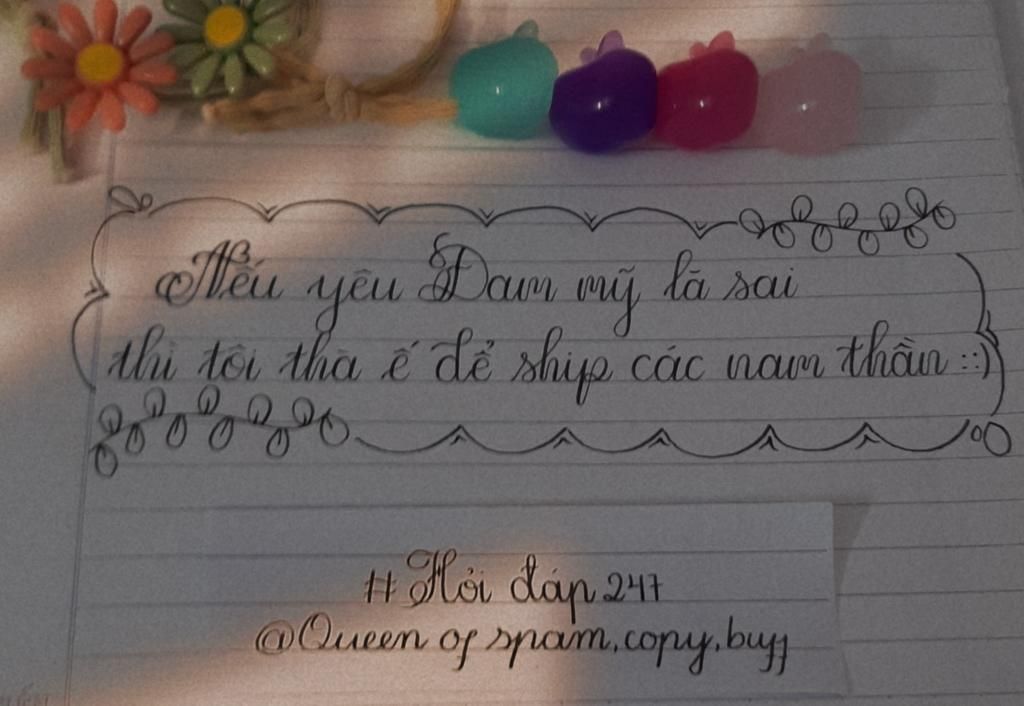 Nếu yêu Đam mỹ là sai
thì tôi thà ế để ship các nam thần ::)
# Hỏi đáp 247
@Queen of spam,copy,buff